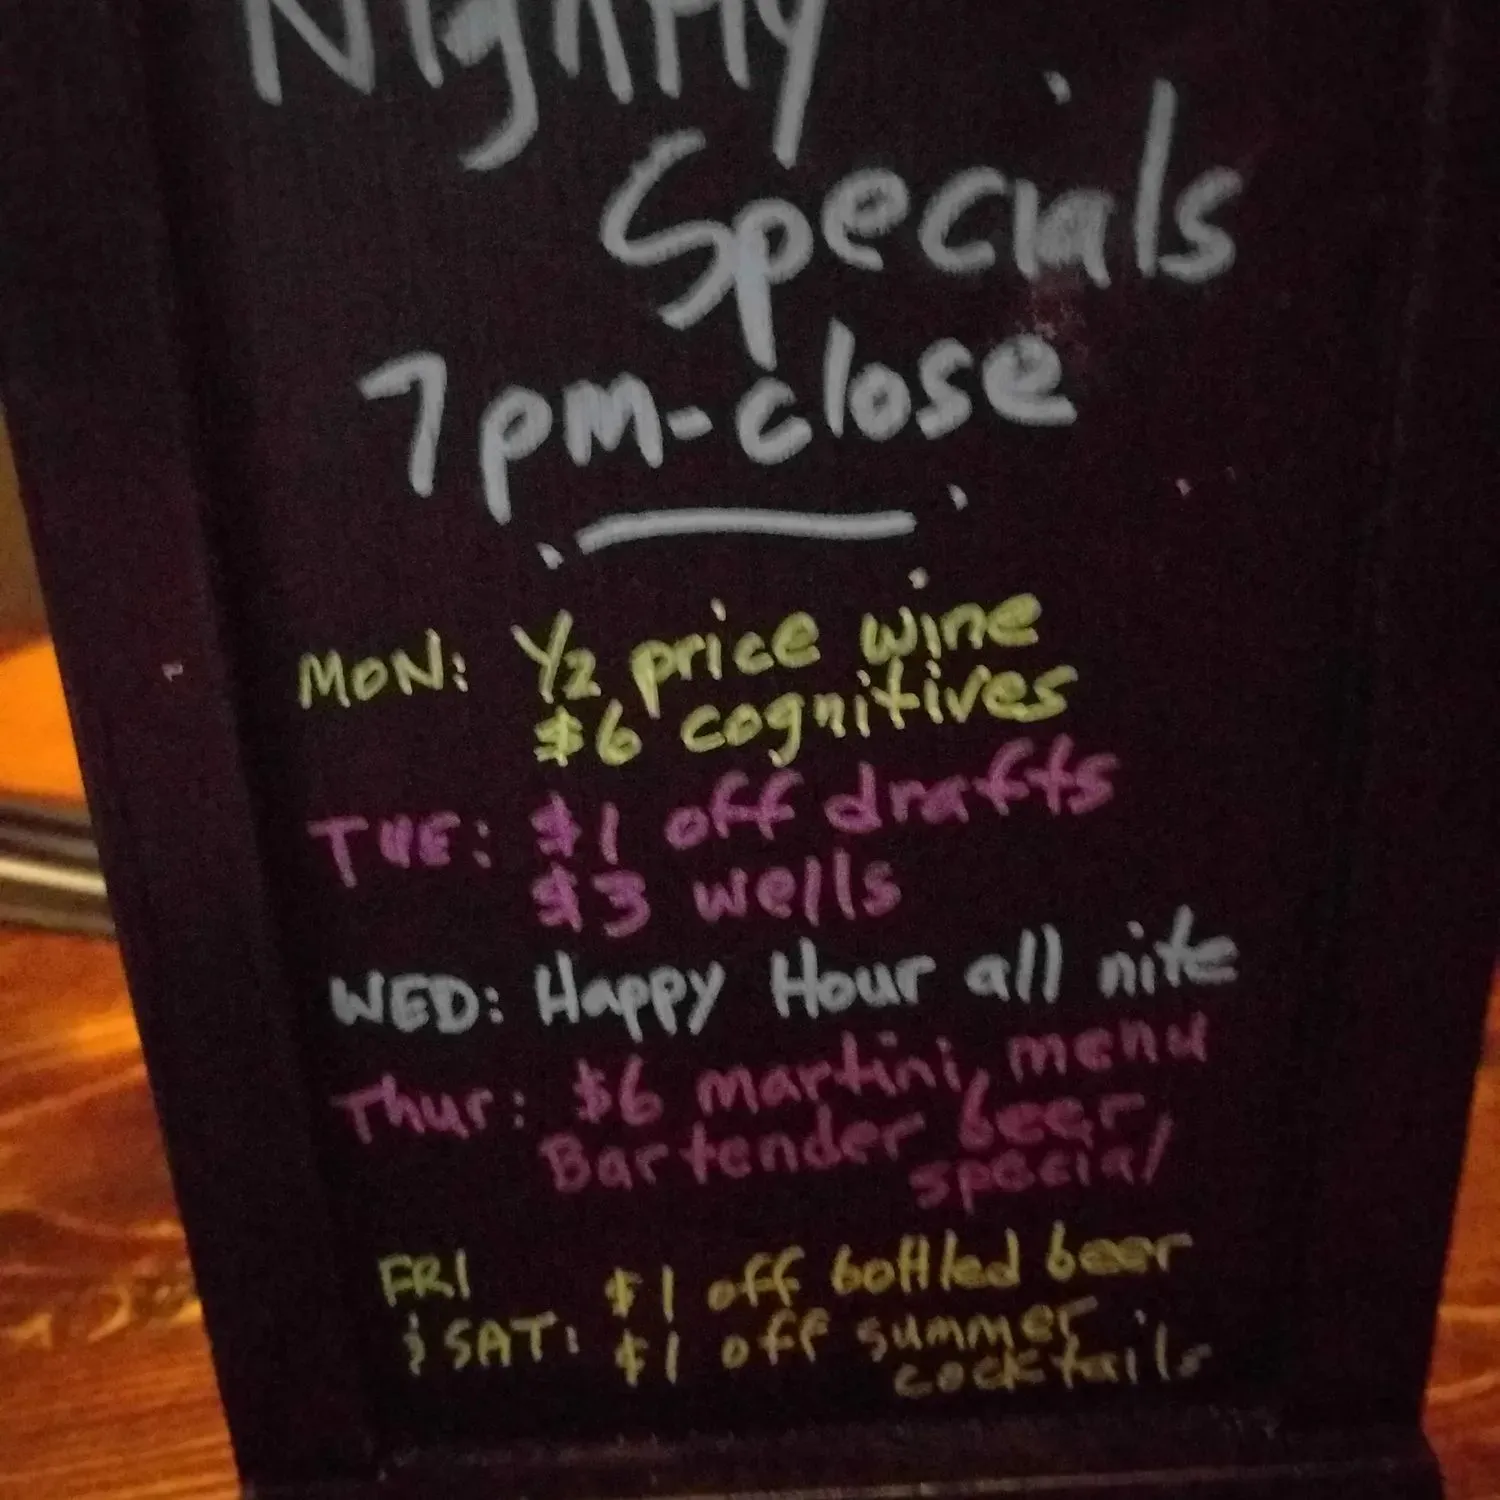 Nightly
Specials
7pm-close
MON: 1/2 price wine
$6 cognitives
TUE: $1 off drafts
$3 wells
WED: Happy Hour all nite
Thur: $6 martini, menu
Bartender beer
special
FRI $1 off bottled beer
& SAT: $1 off summer
cocktails